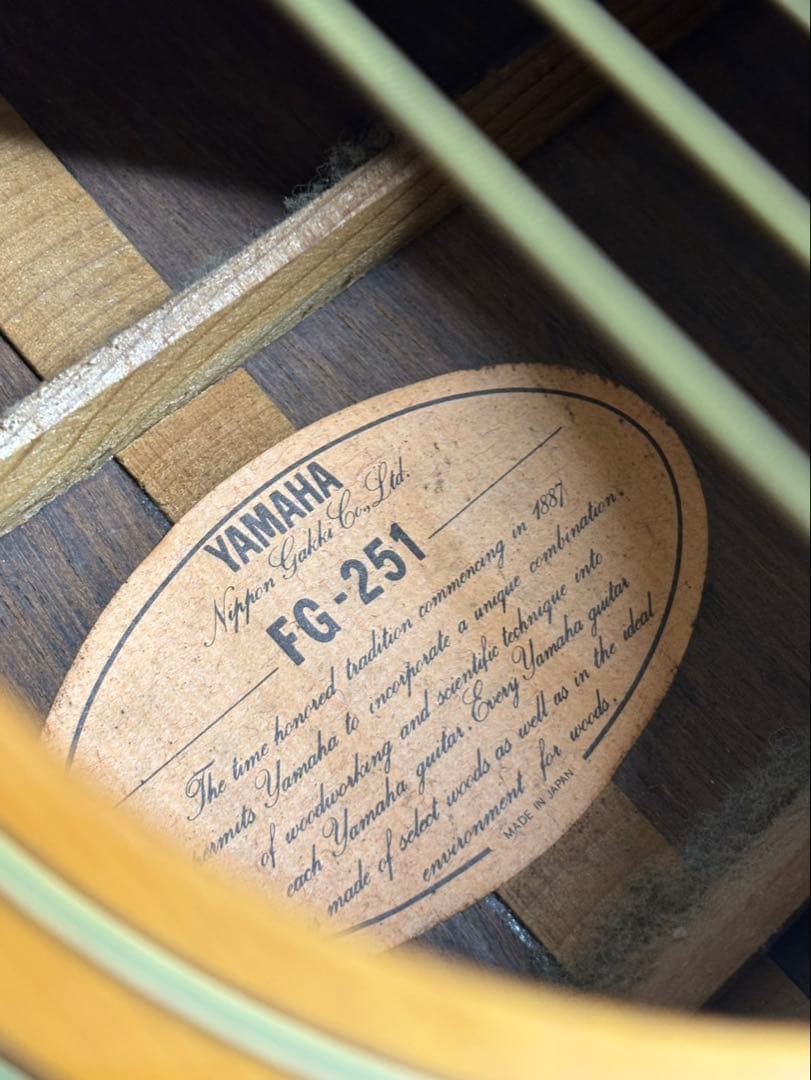 YAMAHA
Nippon Gakki Co., Ltd.
FG-251
The time honored tradition commencing in 1887
permits Yamaha to incorporate a unique combination.
of woodworking and scientific technique into
each Yamaha guitar. Every Yamaha guitar
made of select woods as well as in the ideal
environment for woods.
MADE IN JAPAN